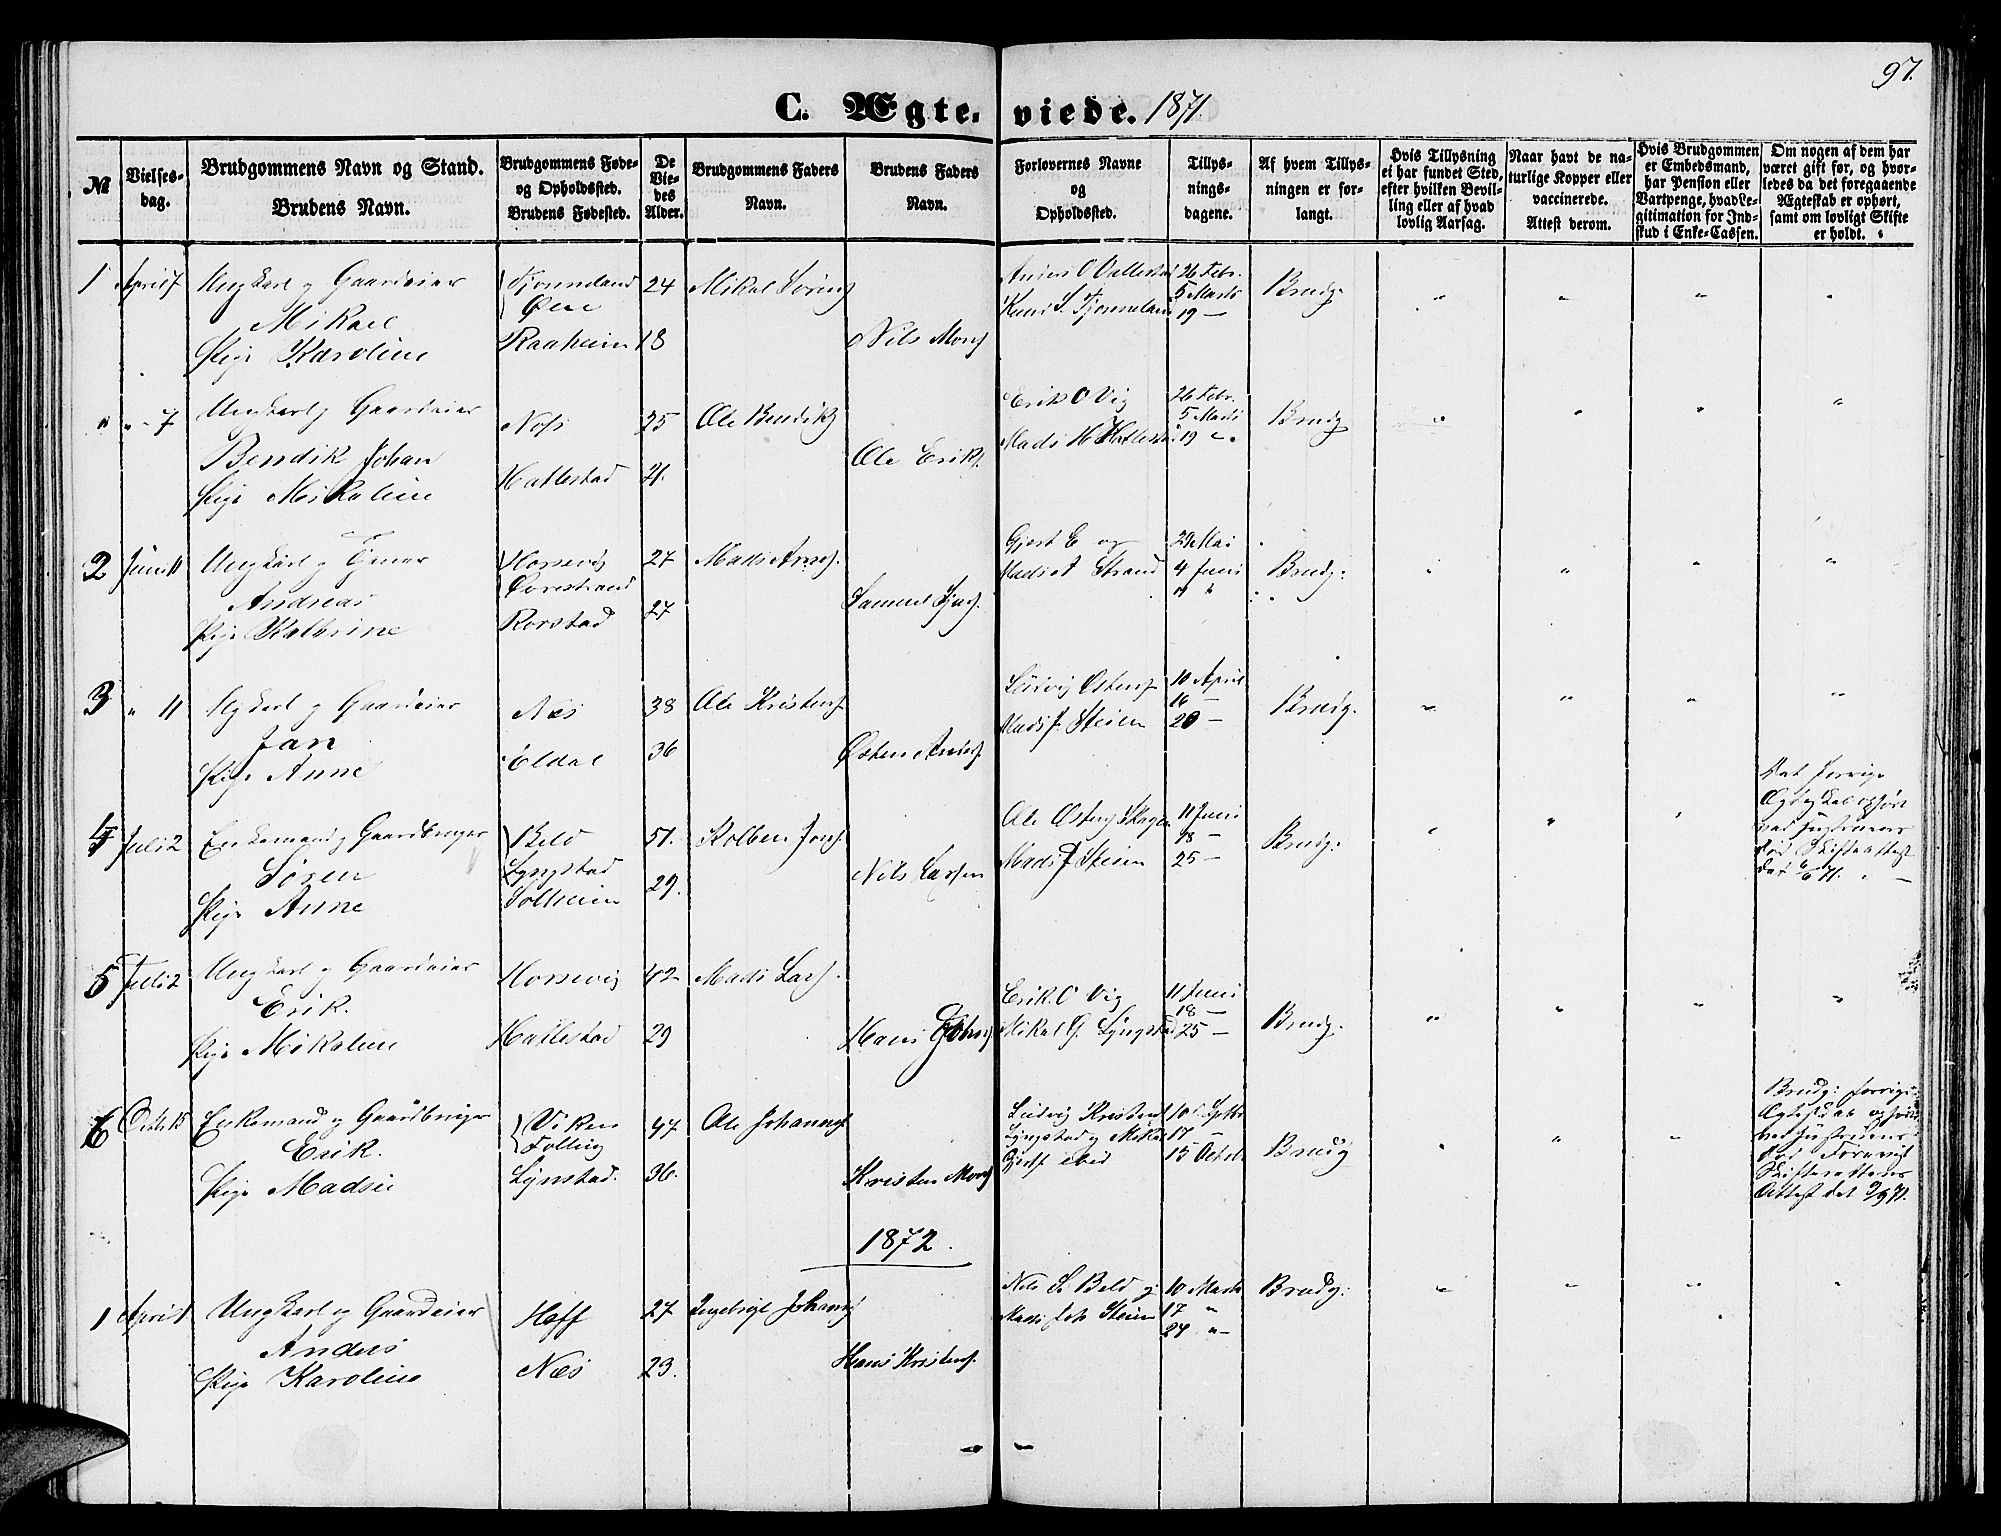 97.
C. Ægte-viede. 1871.
№
Vielses-
dag.
Brudgommens Navn og Stand.
Brudens Navn.
Brudgommens Føde-
og Opholdssted.
Brudens Fødested.
De
Vie-
des
Alder.
Brudgommens Faders
Navn.
Brudens Faders
Navn.
Forlovernes Navne
og
Opholdssted.
Tillys-
nings-
dagene.
Af hvem Tillys-
ningen er for-
langt.
Hvis Tillysning
ei har fundet Sted,
efter hvilken Bevil-
ling eller af hvad
lovlig Aarsag.
Naar havt de na-
turlige Kopper eller
vaccinerede.
Attest derom.
Hvis Brudgommen
er Embedsmand,
har Pension eller
Vartpenge, hvad Le-
gitimation for Ind-
skud i Enke-Cassen.
Om nogen af dem har
været gift før, og hvor-
ledes da det foregaaende
Ægteskab er ophørt,
samt om lovligt Skifte
er holdt.
1 April 7 Ungkarl og Gaardeier
Mikael
Pige Karoline
Tjønneland
Øen
Raaheim
24
18
Mikal Sørens
Nils Mons
Anders O Hallestad
Knut S. Tjønneland
26 Febr.
5 Marts
19 —
Brudg.
" " 7 Ungkarl og Gaardeier
Bendik Johan
Pige Mikaline
Hallestad
25
21.
Ole Bendiks
Ole Eriks.
Erik O Vig
Mads H Hallestad
26 Febr.
5 Marts
19 "
Brudg
2 Juni 11 Ungkarl og
Andreas
Pige Kathrine
Horsevig
Rorstad
27
27
Mads Ands.
Samuel
Gjert E og
Mads A Strand
29 Mai
4 Juni
11 "
Brudg:
3 " 11 Ungkarl og Gaardeier
Jan
Pige Anne
Næs
Eldal
38
36
Ole Kristens.
Østen Anders.
Ludvig Østens
Mads J. Steien
10 April
16 —
20 —
Brudg.
4 Juli 2 Enkemand og Gaardbruger
Søren
Pige Anne
Beld
Lyngstad
Solheim
51.
29.
Kolben Jons.
Nils Larsen
Ole Østens Skagen
Mads J Steien
11 Juni
18 —
25 —
Brudg:
Hat forrige
Ægteskab ophørt
ved Hustruens
død Skifteattest
dat 6/6 71.
5 Juli 2 Ungkarl og Gaardeier
Erik.
Pige Mikaline
Horsevig
Hallestad
42
29
Mads Lars.
Hans Johns
Erik O Vig
Mikal G. Lyngstad
11 Juni
18 —
25 —
Brudg.
6 Octb 15 Enkemand og Gaardbruger
Erik.
Pige Madsie
Viken
Folling
Lynstad.
47
36.
Ole Johannes
Kristen Mons
Ludvig Kristens
Lyngstad og Mikal
Gjerts ibid
10 Septbr
17 —
15 Octob.
Brudg
Brudg: forrige
Ægteskab ophørt
ved Hustruens
død Forevist
Skifterettens
Attest dat 9/9 71.
1872.
1 April 1 Ungkarl og Gaardeier
Anders
Pige Karoline
Heff
Næs
27
23.
Ingebrigt Johans
Hans Kristens.
Nils S. Beld og
Mads Joh Steien
10 Marts
17 "
24 "
Brudg: